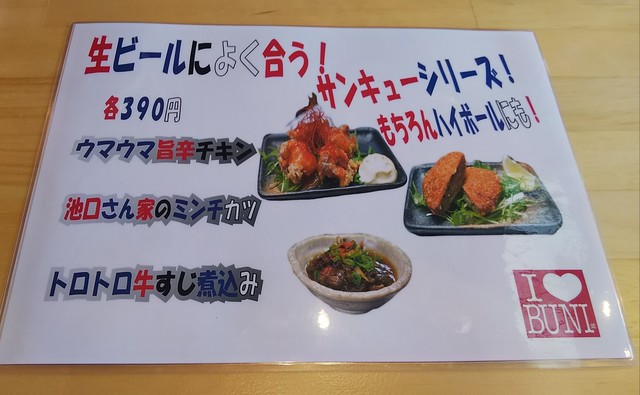 生ビールによく合う！
サンキューシリーズ！
もちろんハイボールにも！
各390円
ウマウマ旨辛チキン
池口さん家のミンチカツ
トロトロ牛すじ煮込み
I
BUNI